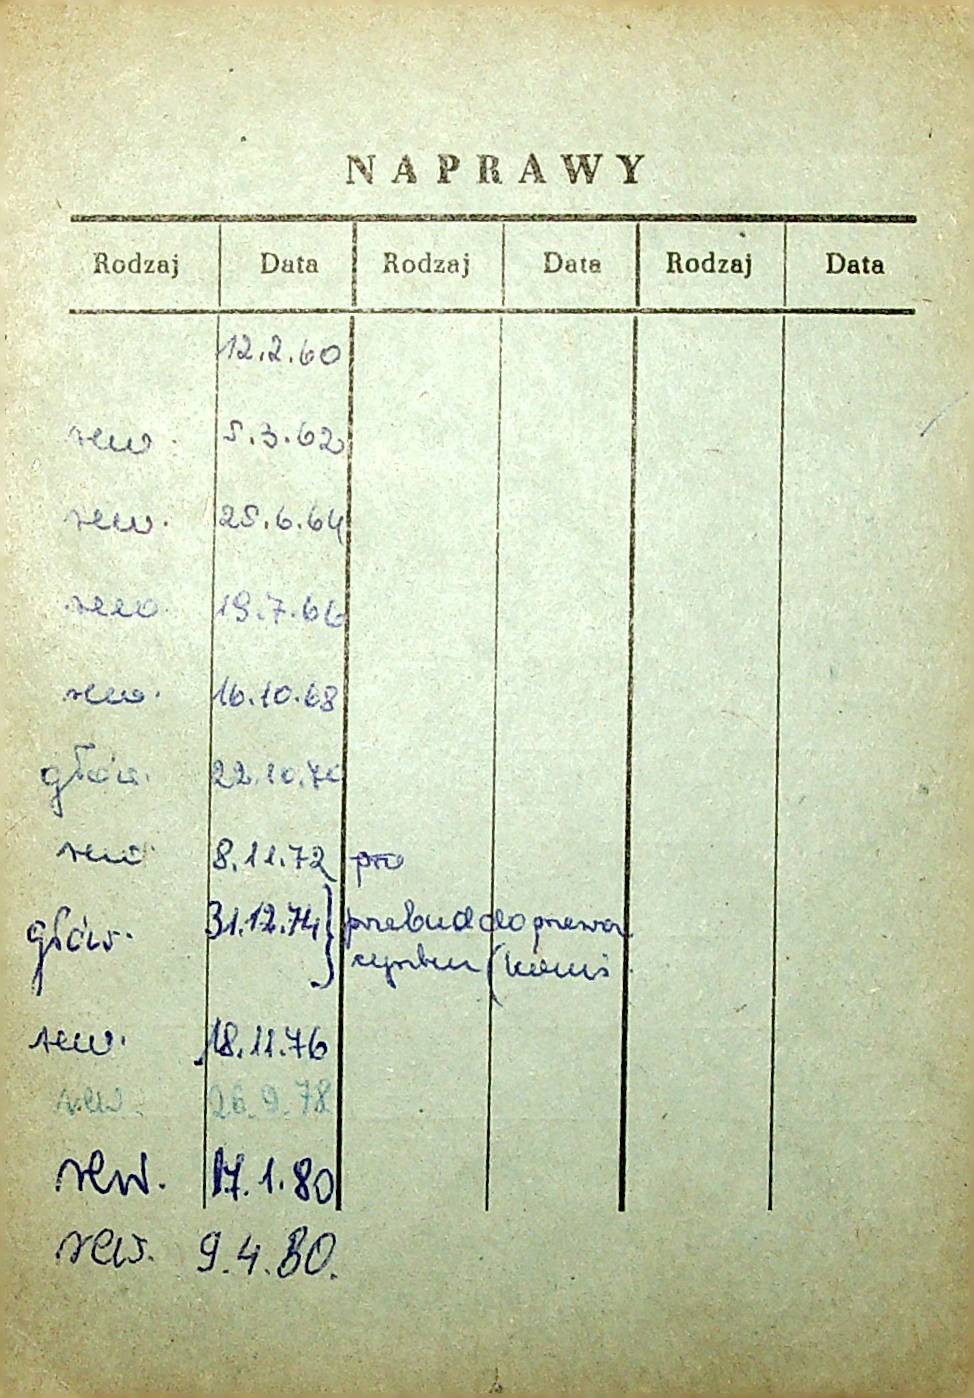 NAPRAWY
Rodzaj Data Rodzaj Data Rodzaj Data
12.2.60
rew. 5.3.62
rew. 25.6.64
rew 19.7.66
rew. 16.10.68
głów. 22.10.70
rew 8.11.72 pro
głów. 31.12.74 } przebud do przewozu
(
rew. 18.11.76
rew. 26.9.78
rew. 17.1.80
rew. 9.4.80.